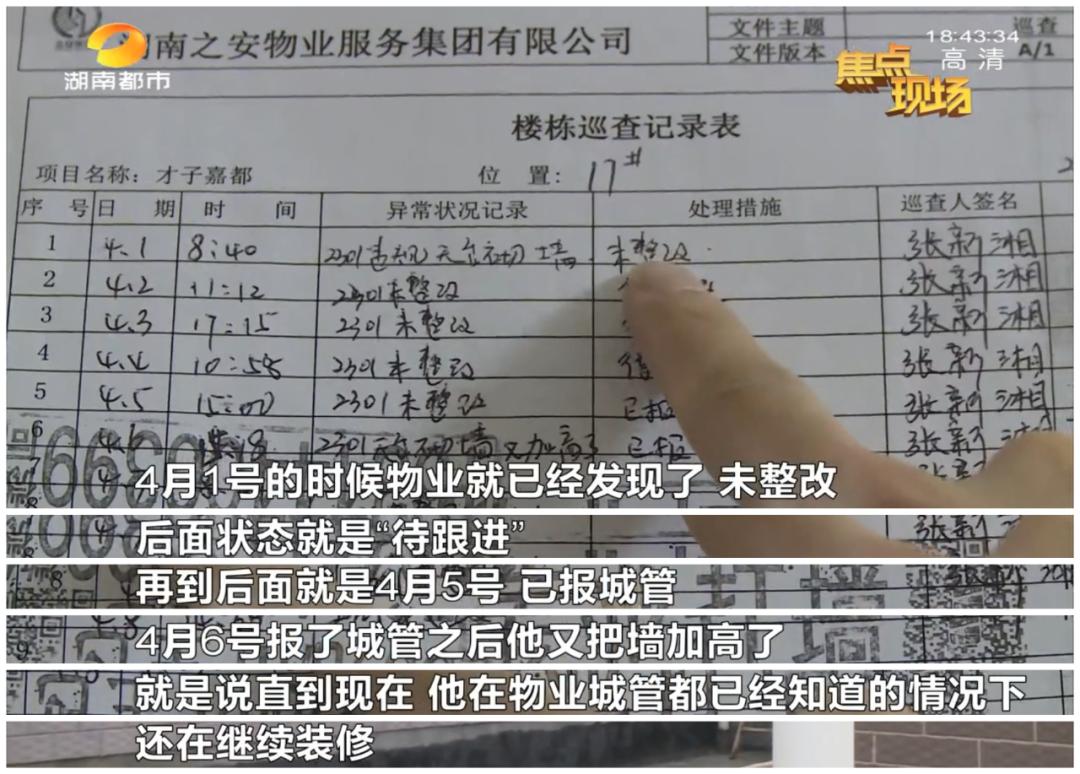 湖南都市
18:43:34
高清
焦点
现场
湖南之安物业服务集团有限公司
文件主题 巡查
文件版本 A/1
楼栋巡查记录表
项目名称：才子嘉都 位 置：17#
序 号 日 期 时 间 异常状况记录 处理措施 巡查人签名
1 4.1 8:40 2301违规天台砌墙. 未整改. 张新湘
2 4.2 11:12 2301未整改 张新湘
3 4.3 17:15 2301未整改 张新湘
4 4.4 10:58 2301未整改 待 张新湘
5 4.5 15:00 2301未整改 已报 张新湘
6 4.6 2301天台砌墙又加高了 已报 张新湘
7
4月1号的时候物业就已经发现了 未整改
后面状态就是“待跟进”
再到后面就是4月5号 已报城管
4月6号报了城管之后他又把墙加高了
就是说直到现在 他在物业城管都已经知道的情况下
还在继续装修